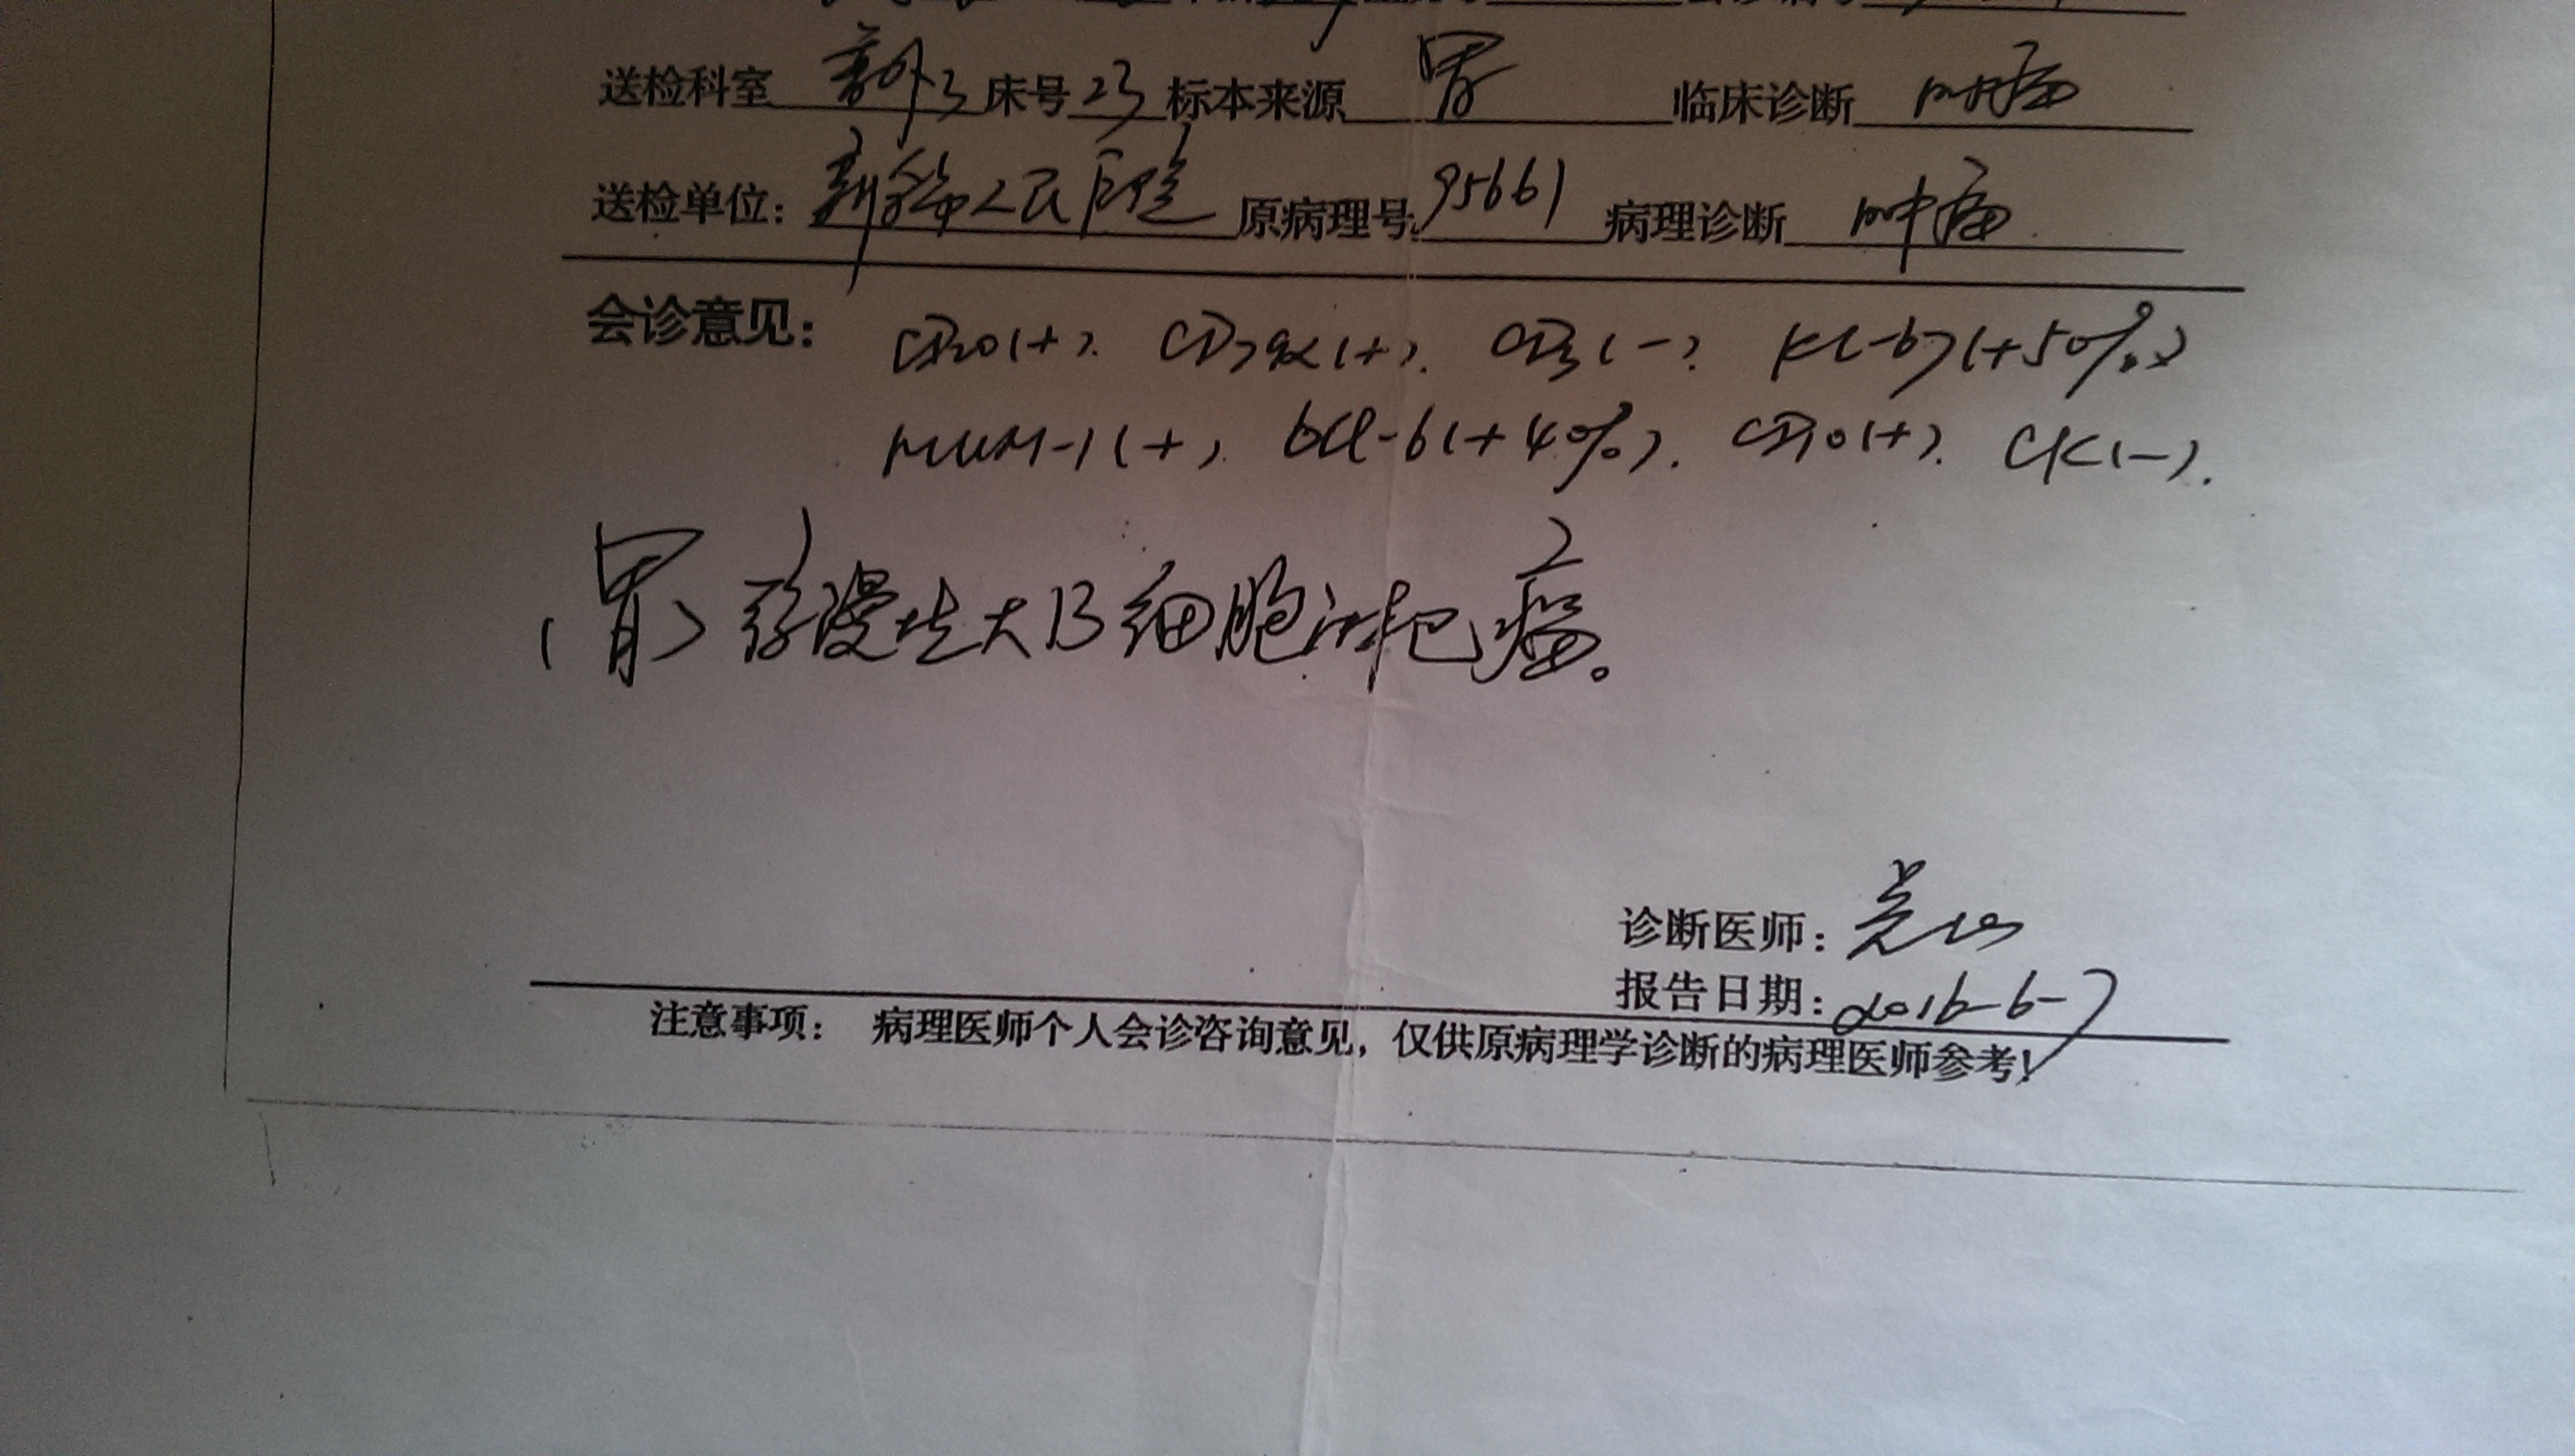 送检科室 普外3 床号 23 标本来源 胃 临床诊断 肿瘤
送检单位: 人民医院 原病理号 95661 病理诊断 肿瘤
会诊意见: CD20(+). CD79α(+). CD3(-). Ki-67(+50%)
MUM-1(+). bcl-6(+40%). CD10(+). CK(-).
(胃)弥漫性大B细胞淋巴瘤。
诊断医师:
报告日期: 2016-6-7
注意事项: 病理医师个人会诊咨询意见，仅供原病理学诊断的病理医师参考!